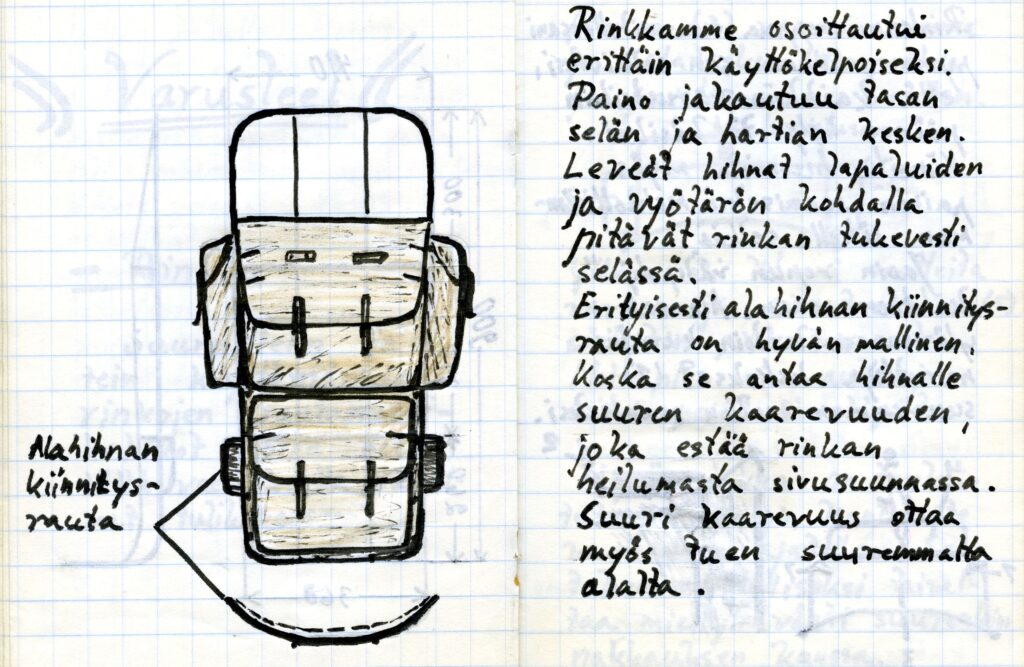 Alahihnan
kiinnitys-
rauta
Rinkkamme osoittautui
erittäin käyttökelpoiseksi.
Paino jakautuu tasan
selän ja hartian kesken.
Leveät hihnat lapaluiden
ja vyötärön kohdalla
pitävät rinkan tukevasti
selässä.
Erityisesti alahihnan kiinnitys-
rauta on hyvän mallinen,
koska se antaa hihnalle
suuren kaarevuuden,
joka estää rinkan
heilumasta sivusuunnassa.
Suuri kaarevuus ottaa
myös tuen suuremmalta
alalta.